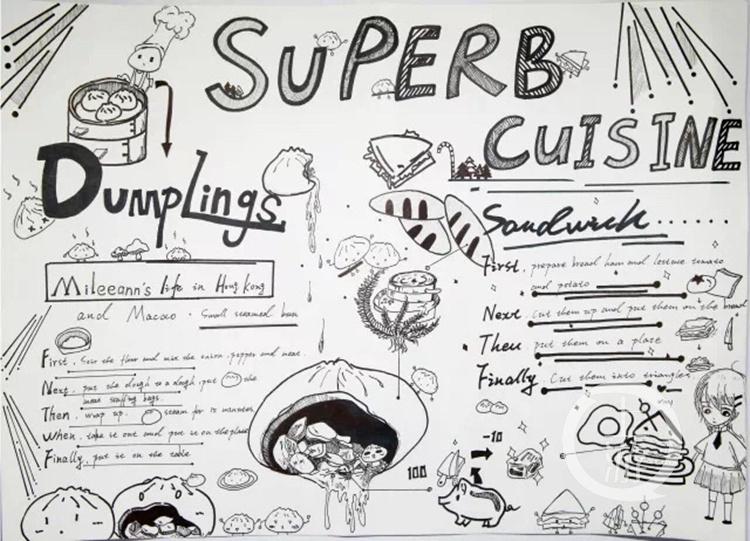 SUPERB
CUISINE
Dumplings
Mileeann's life in Hong Kong
and Macao. Small steamed bun
First, Sow the flour and mix the onion, pepper and meat.
Next, put the dough to a dough, put the
meat stuffing bags.
Then, wrap up. steam for 15 minutes
When, take it out and put it on the place
Finally, put it on the table.
Sandwich......
First, prepare bread ham and lettuce tomato
and potato
Next, cut them up and put them on the bread
Then, put them on a plate
Finally, Cut them into triangles
100
-10